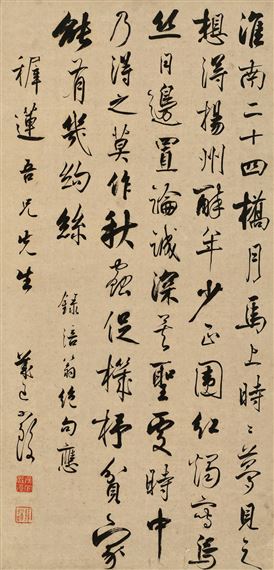 淮南二十四橋月馬上時〻夢見之
想得揚州醉年少正圍紅燭寫烏
絲日邊置論誠深矣聖處時中
乃得之莫作秋蟲促機杼貧家
能有幾絇絲 錄涪翁絕句應
穉蓮吾兄先生